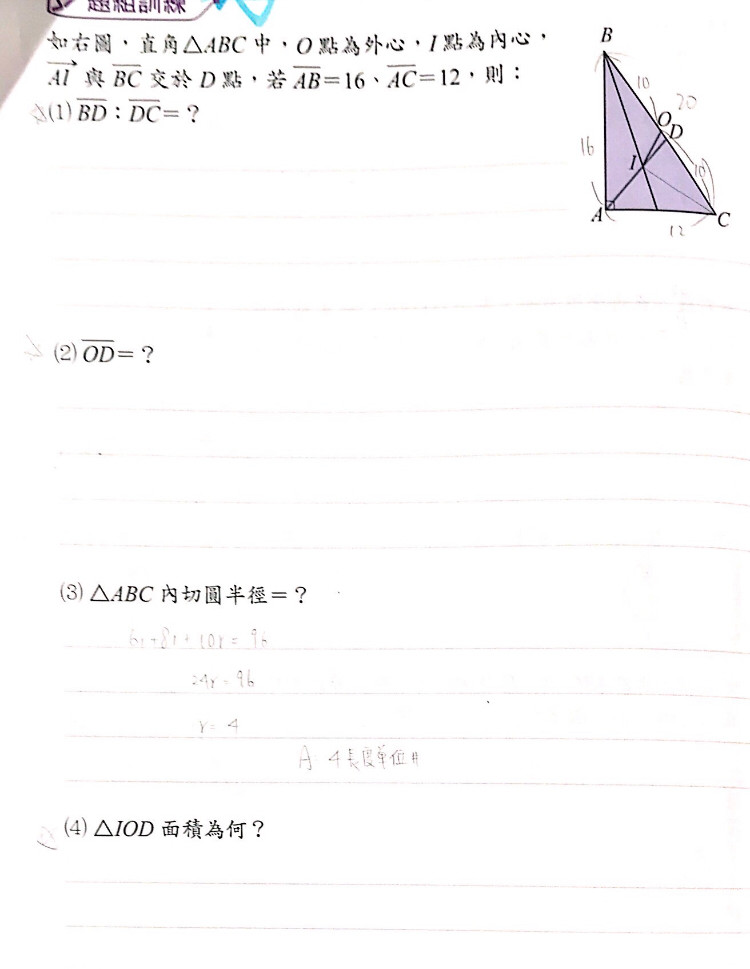 題組訓練
如右圖，直角△ABC 中，O 點為外心，I 點為內心，
AI 與 BC 交於 D 點，若 AB＝16、AC＝12，則：
(1) BD：DC＝？
B
10
20
O
D
16
I
10
A
C
12
(2) OD＝？
(3) △ABC 內切圓半徑＝？
6r+8r+10r=96
24r=96
r=4
A 4長度單位#
(4) △IOD 面積為何？